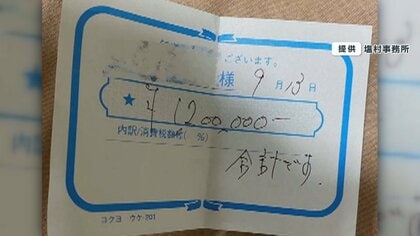 提供 塩村事務所
ございます。
様 9月13日
★ ¥1200,000-
内訳/消費税額等( %)
合計です
コクヨ ウケ-201